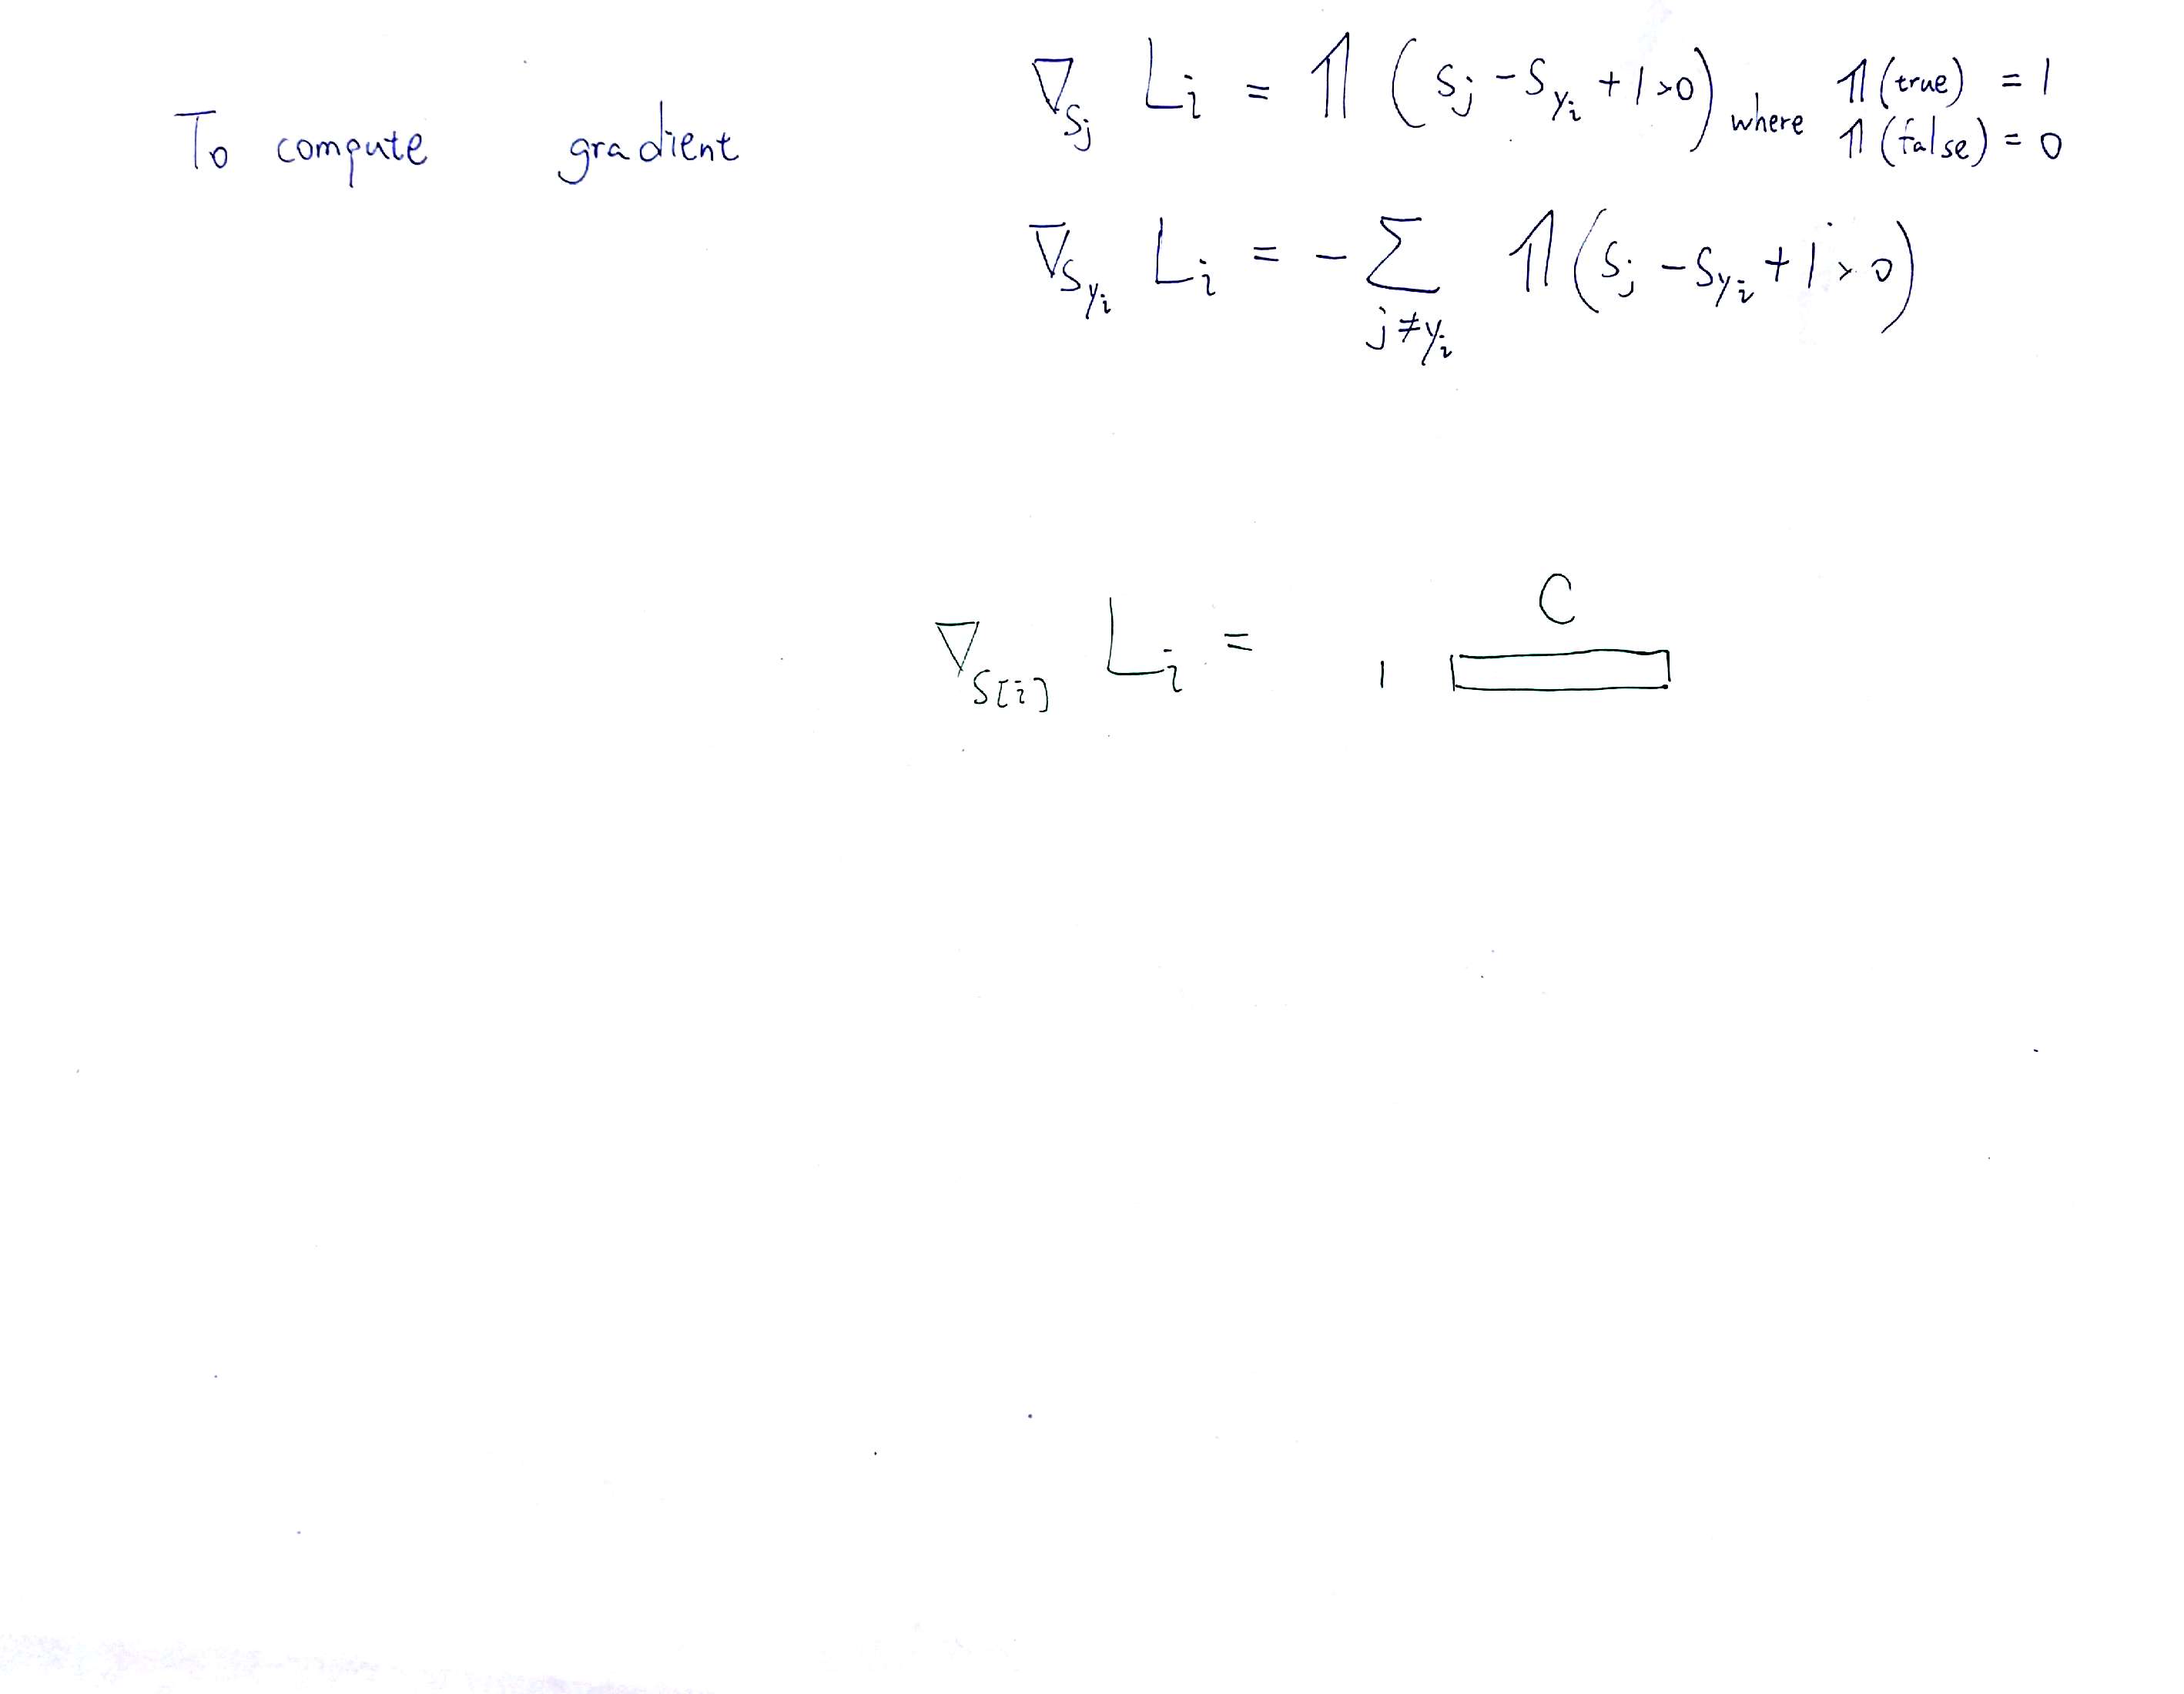 To compute gradient
∇_{S_j} L_i = 𝟙 (S_j - S_{y_i} + 1 > 0) where 𝟙(true) = 1
𝟙(false) = 0
∇_{S_{y_i}} L_i = - ∑_{j≠y_i} 𝟙 (S_j - S_{y_i} + 1 > 0)
C
∇_{S[i]} L_i = 1